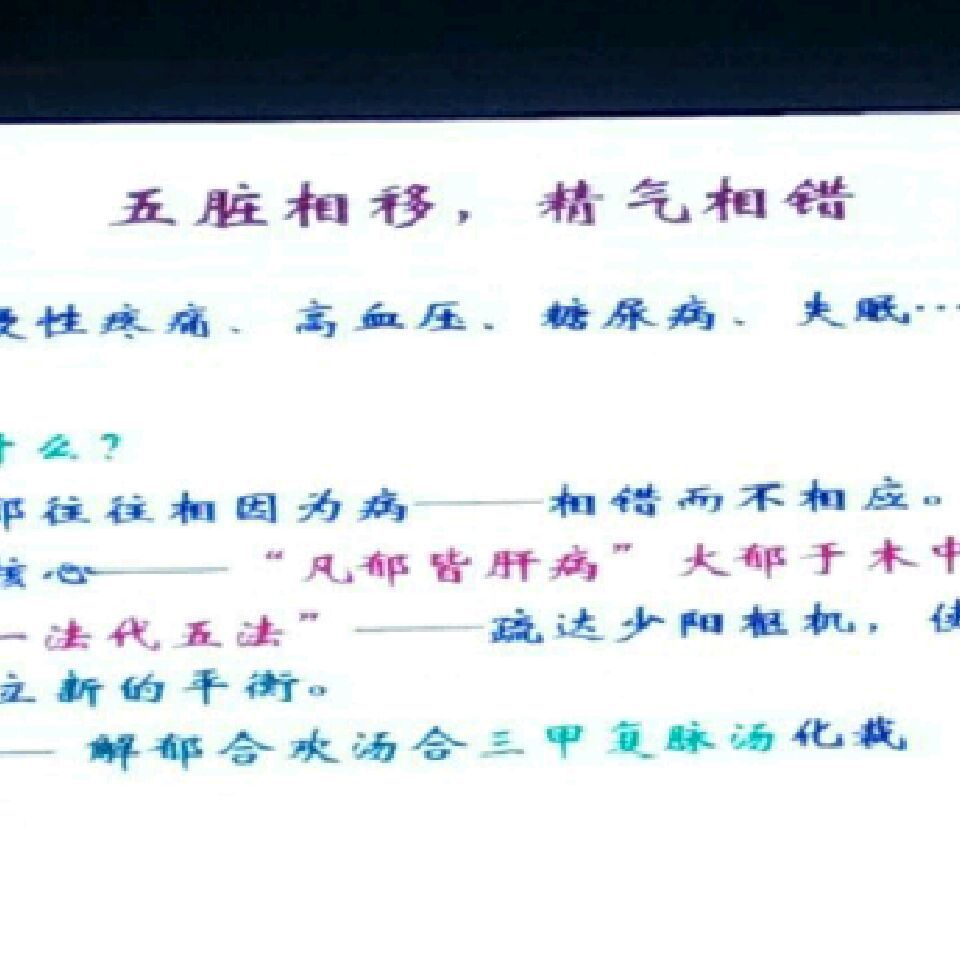 五脏相移，精气相错
性疼痛、高血压、糖尿病、失眠…
么？
郁往往相因为病——相错而不相应。
核心——“凡郁皆肝病”火郁于木中
一法代五法”——疏达少阳枢机，使
立新的平衡。
——解郁合欢汤合三甲复脉汤化裁